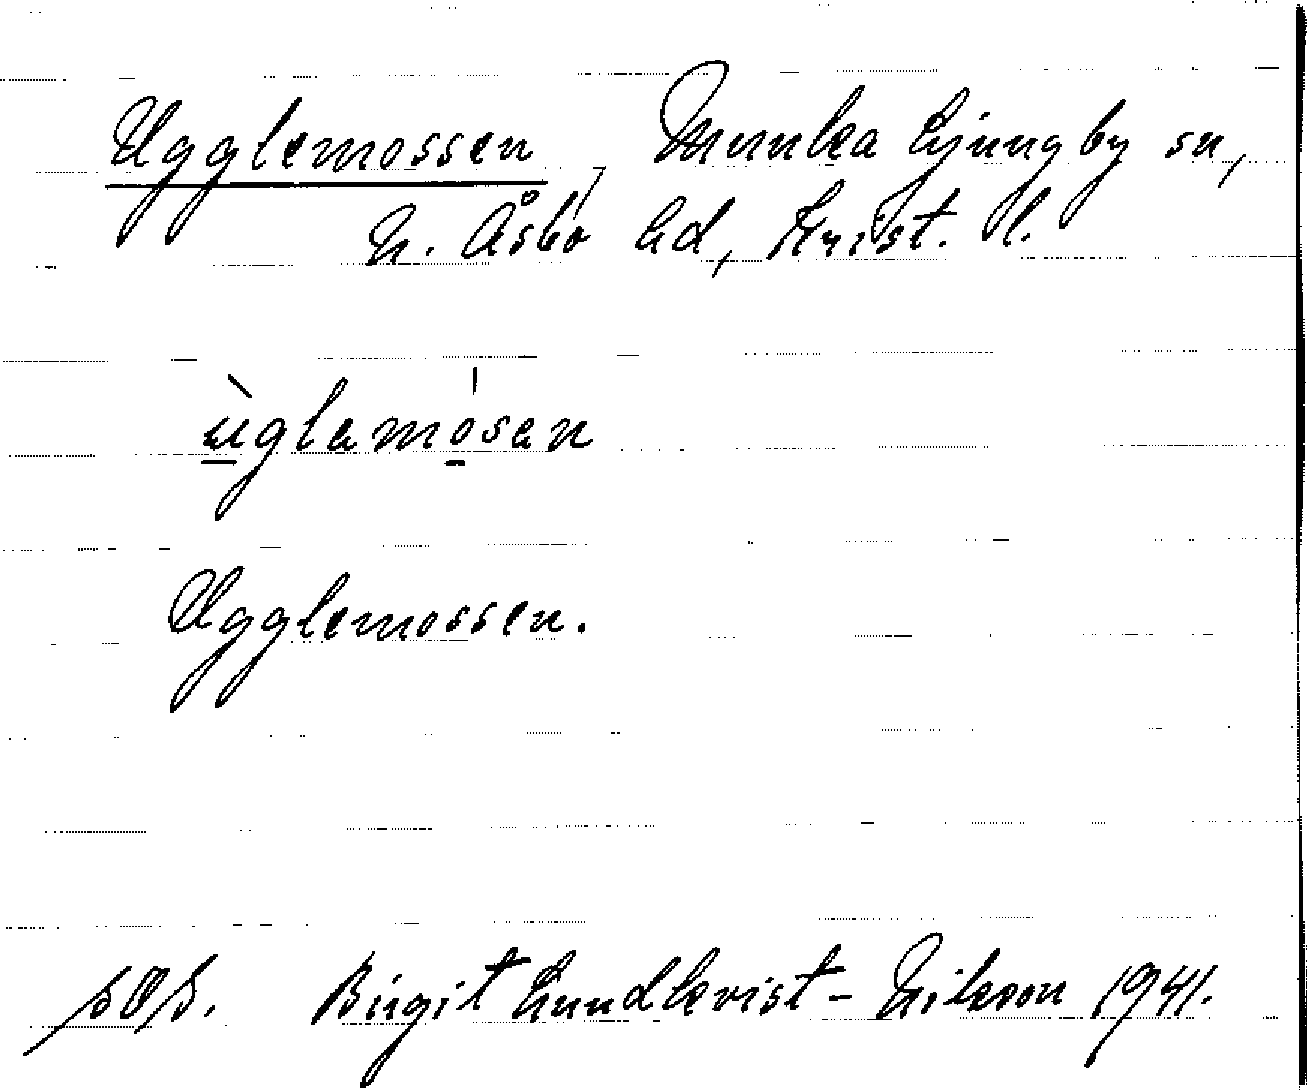 Ugglemossen, Munka Ljungby sn,
N. Åsbo hd, Krist. l.
ùglamósen
Ugglemossen.
Birgit Lundkvist-Nilsson 1941.